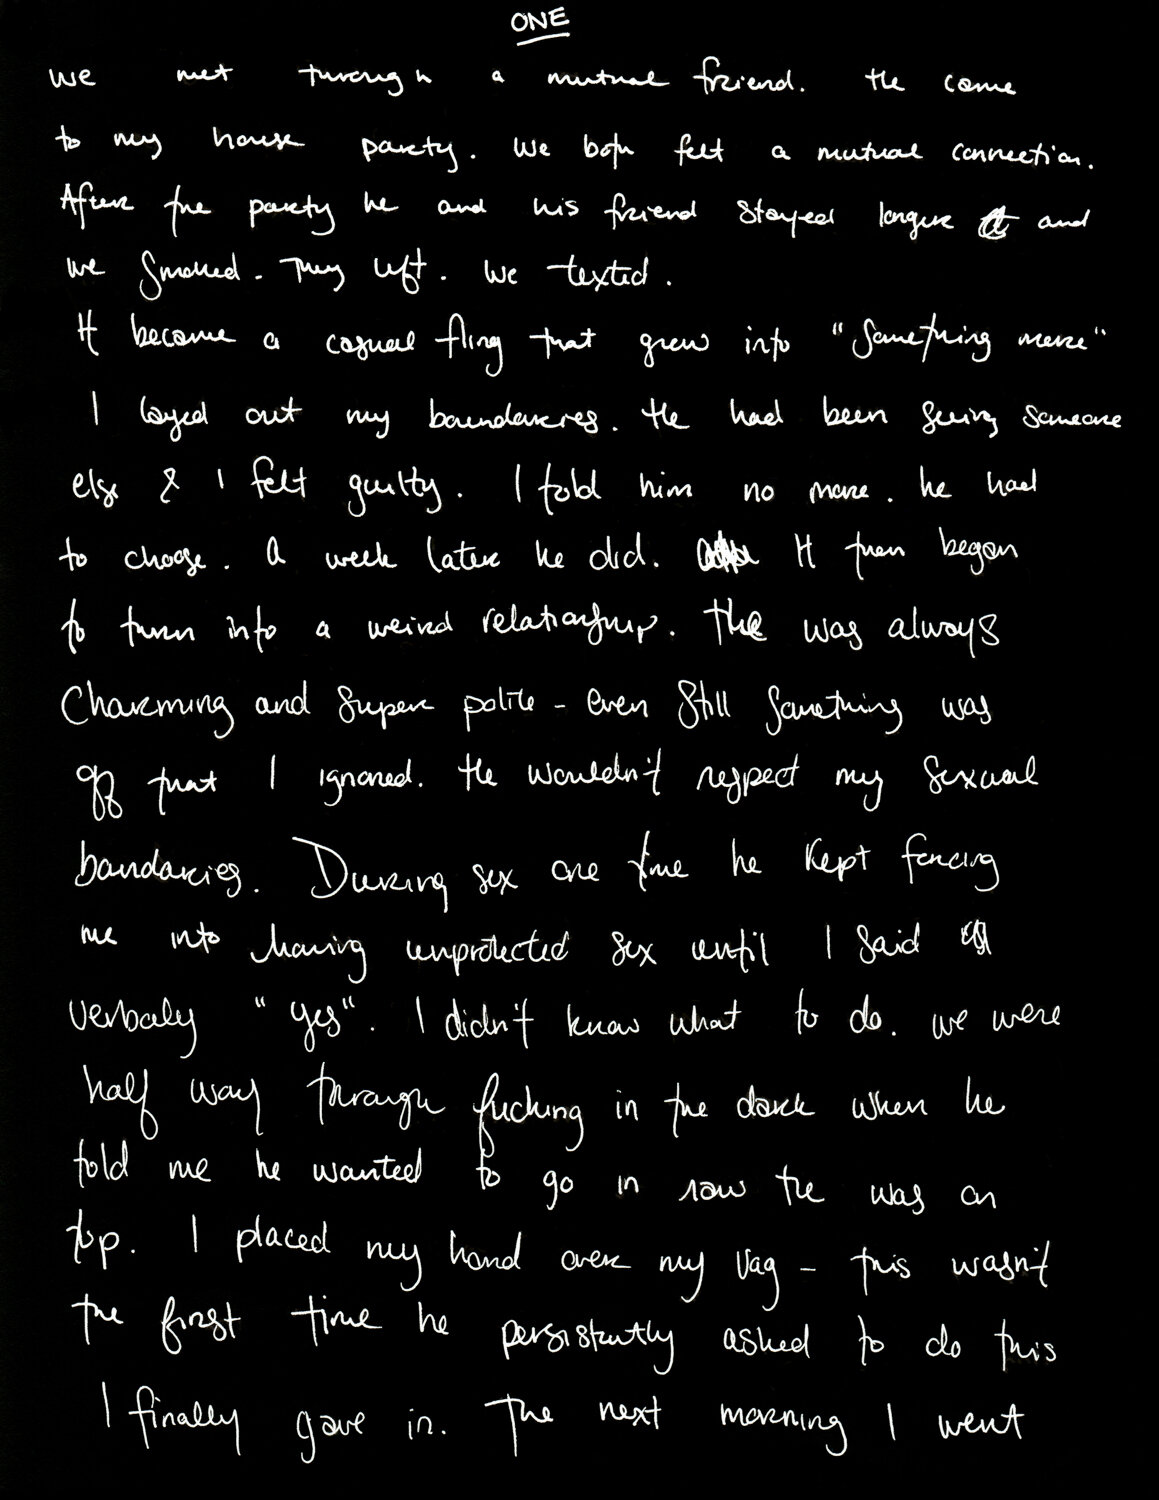 ONE
We met through a mutual friend. He came
to my house party. We both felt a mutual connection.
After the party he and his friend stayed longer and
we smoked. They left. We texted.
It became a casual fling that grew into "Something more"
I layed out my boundaries. He had been seeing someone
else & I felt guilty. I told him no more. he had
to choose. A week later he did. It then began
to turn into a weird relationship. He was always
Charming and super polite - even still something was
off that I ignored. He wouldn't respect my sexual
boundaries. During sex one time he kept forcing
me into having unprotected sex until I said
verbaly "yes". I didn't know what to do. we were
half way through fucking in the dark when he
told me he wanted to go in raw He was on
top. I placed my hand over my vag - this wasn't
the first time he persistently asked to do this
I finally gave in. The next morning I went